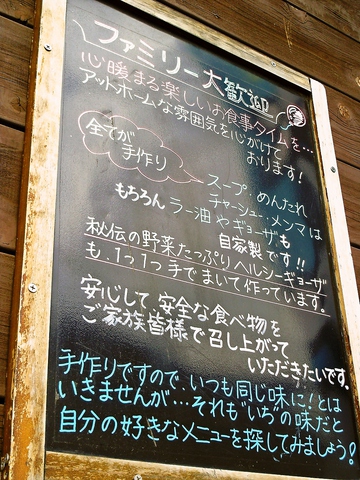 ファミリー大歓迎
心暖まる楽しいお食事タイムを…
アットホームな雰囲気を心がけて
おります!
全てが
手作り
スープ、めんたれ
チャーシュー、メンマは
もちろん ラー油やギョーザも
自家製です!!
秘伝の野菜たっぷりヘルシーギョーザ
も、1つ1つ手でまいて作っています。
安心して、安全な食べ物を
ご家族皆様で召し上がって
いただきたいです。
手作りですので、いつも同じ味に!とは
いきませんが…それも"いち"の味だと
自分の好きなメニューを探してみましょう!